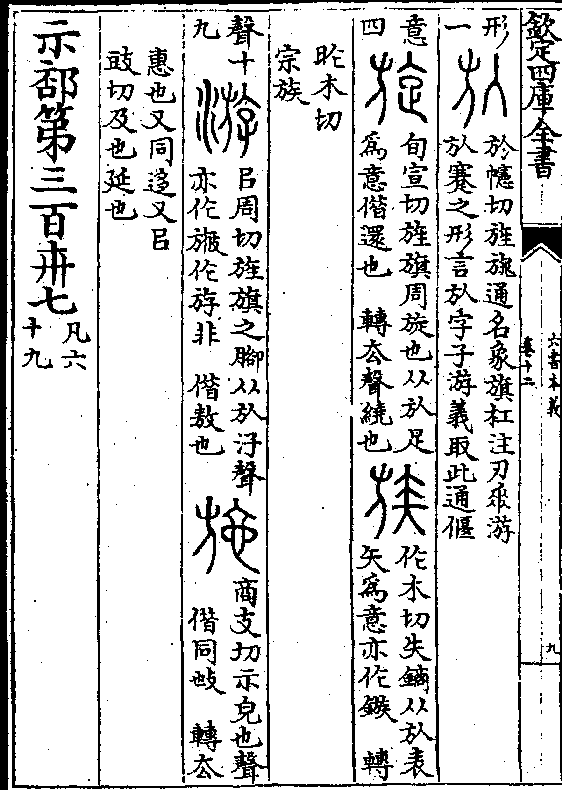 欽定四庫全書
六書本義
卷十二
九
形
一 㫃 於幰切旌旗通名象旗杠注刃䍃游
㫃蹇之形言㫃字子游義取此通偃
意
四 旋 旬宣切旌旗周旋也从㫃足
爲意偕還也 轉去聲繞也
族 作木切矢鏑从㫃表
矢爲意亦作鏃 轉
昨木切
宗族
聲十
九 游 㠯周切旌旗之腳从㫃汓聲
亦作旇作斿非 偕敖也
施 商支切示皃也聲
偕同䢋 轉去
惠也又同迻又㠯
豉切及也延也
示部第三百卌七 凡六
十九